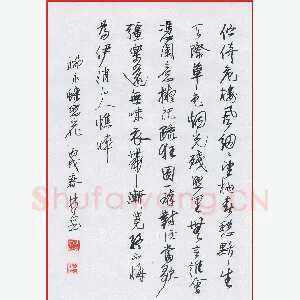 伫倚危楼風細〻望極春愁黯〻生
天際草色烟光殘照里無言誰會
憑闌意擬把疏狂圖一醉對酒當歌
強樂還無味衣帶漸寬終不悔
為伊消得人憔悴
柳永蝶恋花 丙戌春
Shufawang.CN